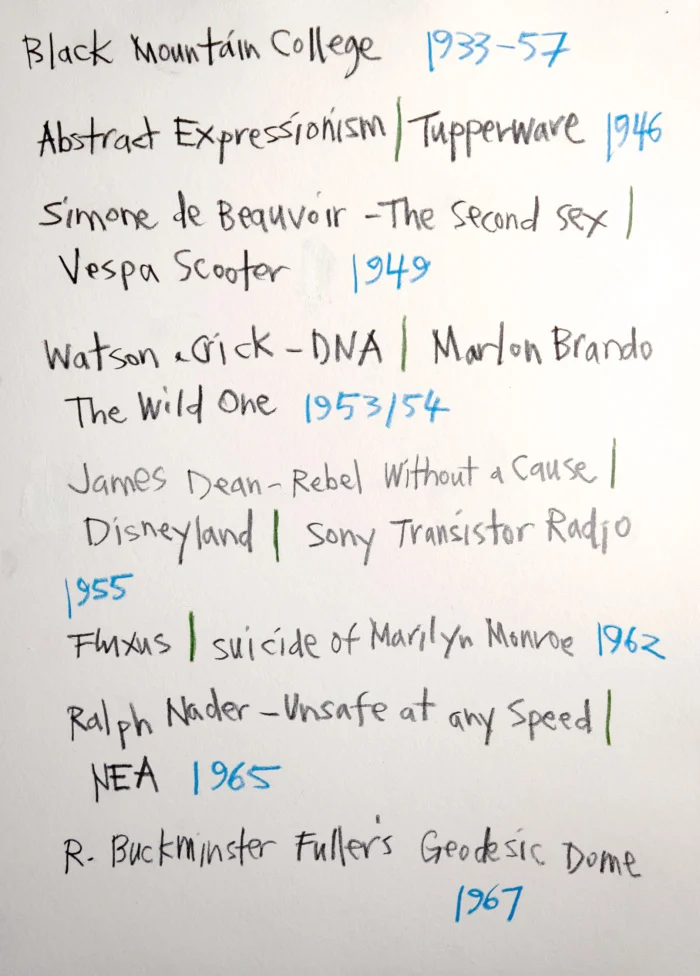 Black Mountain College 1933-57
Abstract Expressionism | Tupperware 1946
Simone de Beauvoir - The Second Sex |
Vespa Scooter 1949
Watson & Crick - DNA | Marlon Brando
The Wild One 1953/54
James Dean - Rebel Without a Cause |
Disneyland | Sony Transistor Radio
1955
Fluxus | suicide of Marilyn Monroe 1962
Ralph Nader - Unsafe at any Speed |
NEA 1965
R. Buckminster Fuller's Geodesic Dome
1967